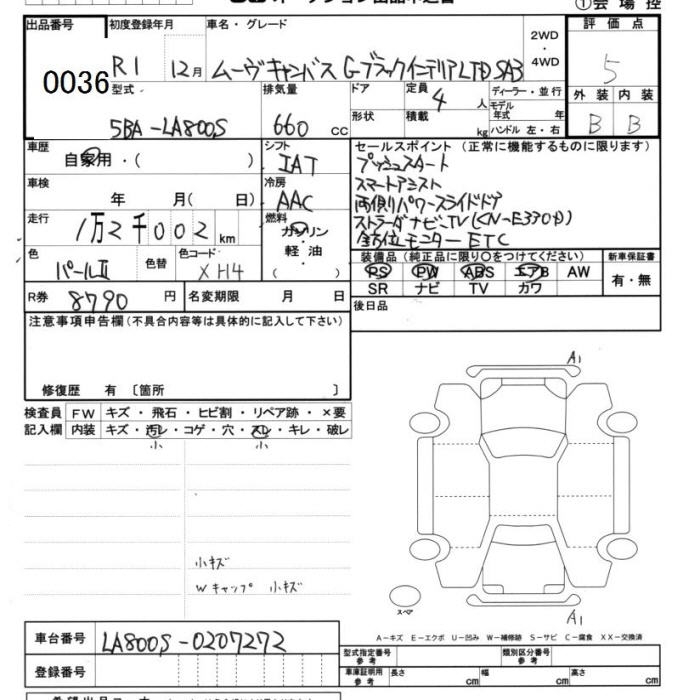 ①会場控
出品番号 初度登録年月 車名・グレード 評価点
0036 R1 12月 ムーヴキャンバス GブラックインテリアLTD SA3 2WD・4WD 5
型式 排気量 ドア 定員 4人 ディーラー・並行 外装 内装
5BA-LA800S 660cc 形状 積載 kg モデル年式 年 ハンドル 左・右 B B
車歴 シフト セールスポイント(正常に機能するものに限ります)
自家用・( ) IAT プッシュスタート
車検 冷房 スマートアシスト
年 月( 日) AAC 両側パワースライドドア
走行 燃料 ストラーダナビ-TV(CN-E330D)
1万2千002km ガソリン 全方位モニター ETC
色 色替 色コード 軽油 装備品(純正品に限り○をつけてください) 新車保証書
パールII XH4 ( ) PS PW ABS エアB AW 有・無
SR ナビ TV カワ
R券 8790円 名変期限 月 日 後日品
注意事項申告欄(不具合内容等は具体的に記入して下さい)
修復歴 有〔箇所 〕
A1
検査員 FW キズ・飛石・ヒビ割・リペア跡・×要
記入欄 内装 キズ・汚レ・コゲ・穴・スレ・キレ・破レ
小 小
小キズ
Wキャップ 小キズ
スペア
A1
A-キズ E-エクボ U-凹み W-補修跡 S-サビ C-腐食 XX-交換済
車台番号 LA800S-0207272
型式指定番号 参考 類別区分番号 参考
登録番号 車庫証明用 参考 長さ cm 幅 cm 高さ cm